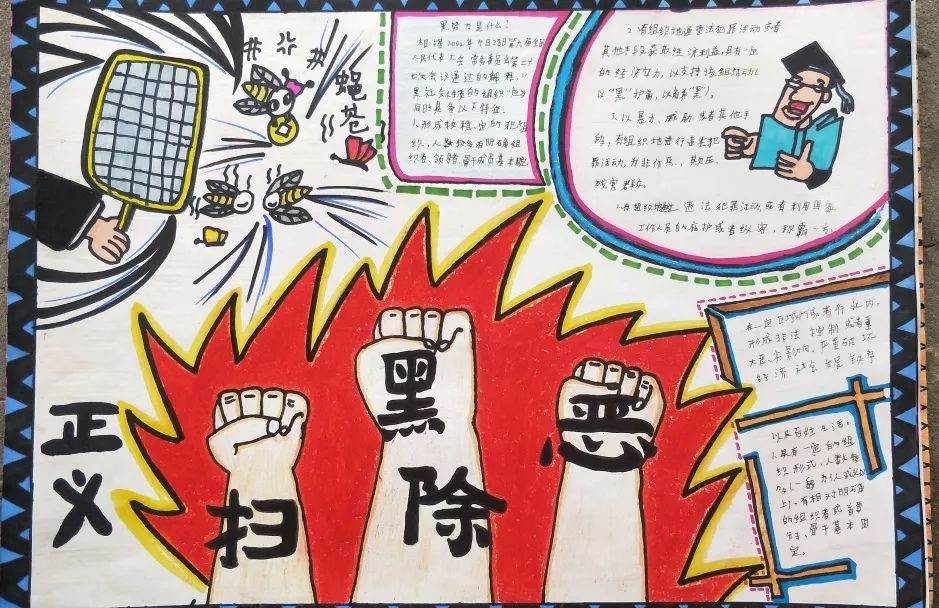 黑势力是什么?
根据2002年4月28日第九届全国
人民代表大会常务委员会第二十
七次会议通过的解释,"
黑社会性质的组织"应当
同时具备以下特征:
1.形成较稳定的犯罪组
织,人数较多有明确组
织者、领导,骨干成员基本稳
2.有组织地通违法犯罪活动或者
其他手段获取经济利益,具有一定
的经济实力,以支持该组织活动(
以"黑"护商,以商养"黑")。
3.以暴力、威胁或者其他手
段,有组织地进行违法犯
罪活动,为非作恶、欺压、
残害群众。
违法犯罪活动,或者利用国家
工作人员的庇护或者纵容,称霸一方,
在一定区域内或者行业内,
形成非法控制或者重
大恶劣影响,严重破坏
经济社会生活秩序
以及百姓生活。
1.具有一定的组
织形式,人数较
多(一般为3人或以
上),有相对明确
的组织者或首要
分子、骨干基本固
定。
蝇
苍
正
义
扫
黑
除
恶